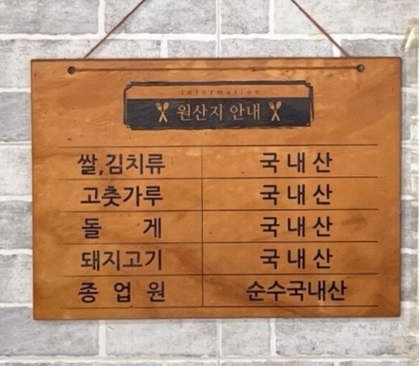 information
원산지 안내
쌀,김치류 국내산
고춧가루 국내산
돌 게 국내산
돼지고기 국내산
종업원 순수국내산